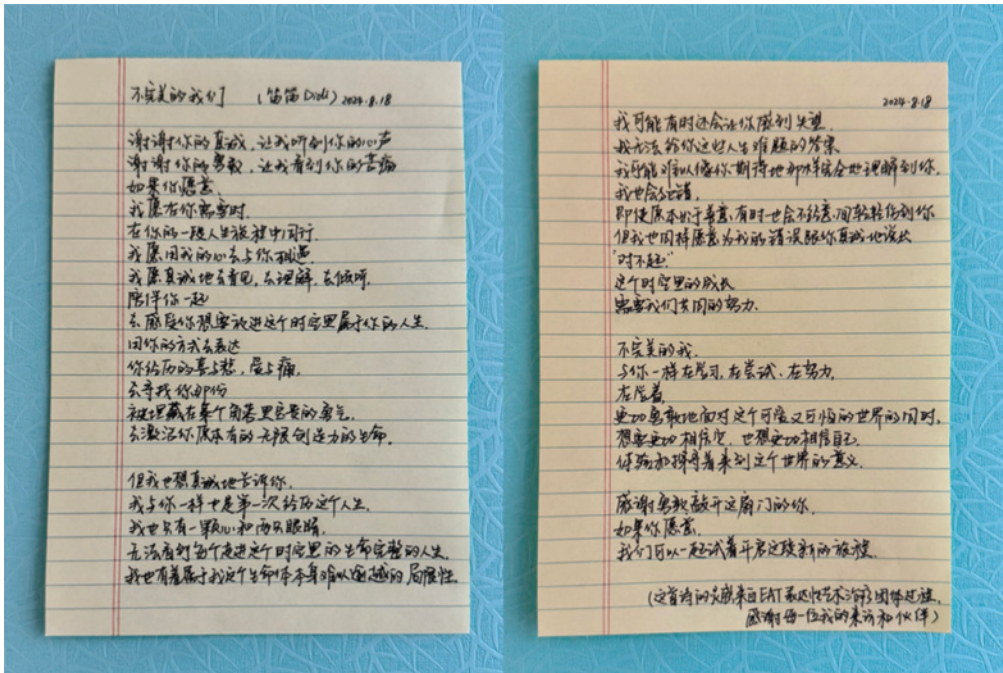 不完美的我们 (笛笛Didi) 2024.8.18
谢谢你的真诚，让我听到你的心声
谢谢你的勇敢，让我看到你的苦痛
如果你愿意，
我愿在你需要时，
在你的一段人生旅程中同行，
我愿用我的心去与你相遇，
我愿真诚地去看见，去理解，去倾听，
陪伴你一起
去感受你想要放进这个时空里属于你的人生，
用你的方式去表达
你经历的喜与悲，爱与痛，
去寻找你那份
被埋藏在某个角落里宝贵的勇气，
去激活你原本有的无限创造力的生命。
但我也想真诚地告诉你，
我与你一样也是第一次经历这个人生，
我也只有一颗心和两只眼睛，
无法看到每个走进这个时空里的生命完整的人生，
我也有着属于我这个生命体本身难以逾越的局限性，
2024.8.18
我可能有时还会让你感到失望，
我无法给你这些人生难题的答案，
我可能难以像你期待地那样完全地理解到你，
我也会犯错，
即使原本出于善意，有时也会不经意间轻轻伤到你
但我也同样愿意为我的错误跟你真诚地说出
“对不起”
这个时空里的成长
需要我们共同的努力。
不完美的我，
与你一样在学习，在尝试，在努力，
在学着，
更加勇敢地面对这个可爱又可怕的世界的同时，
想要更加相信它，也想更加相信自己，
体验和探寻着来到这个世界的意义。
感谢勇敢敲开这扇门的你，
如果你愿意，
我们可以一起试着开启这段新的旅程。
(这首诗的灵感来自EAT表达性艺术治疗团体过程，
感谢每一位我的来访和伙伴)